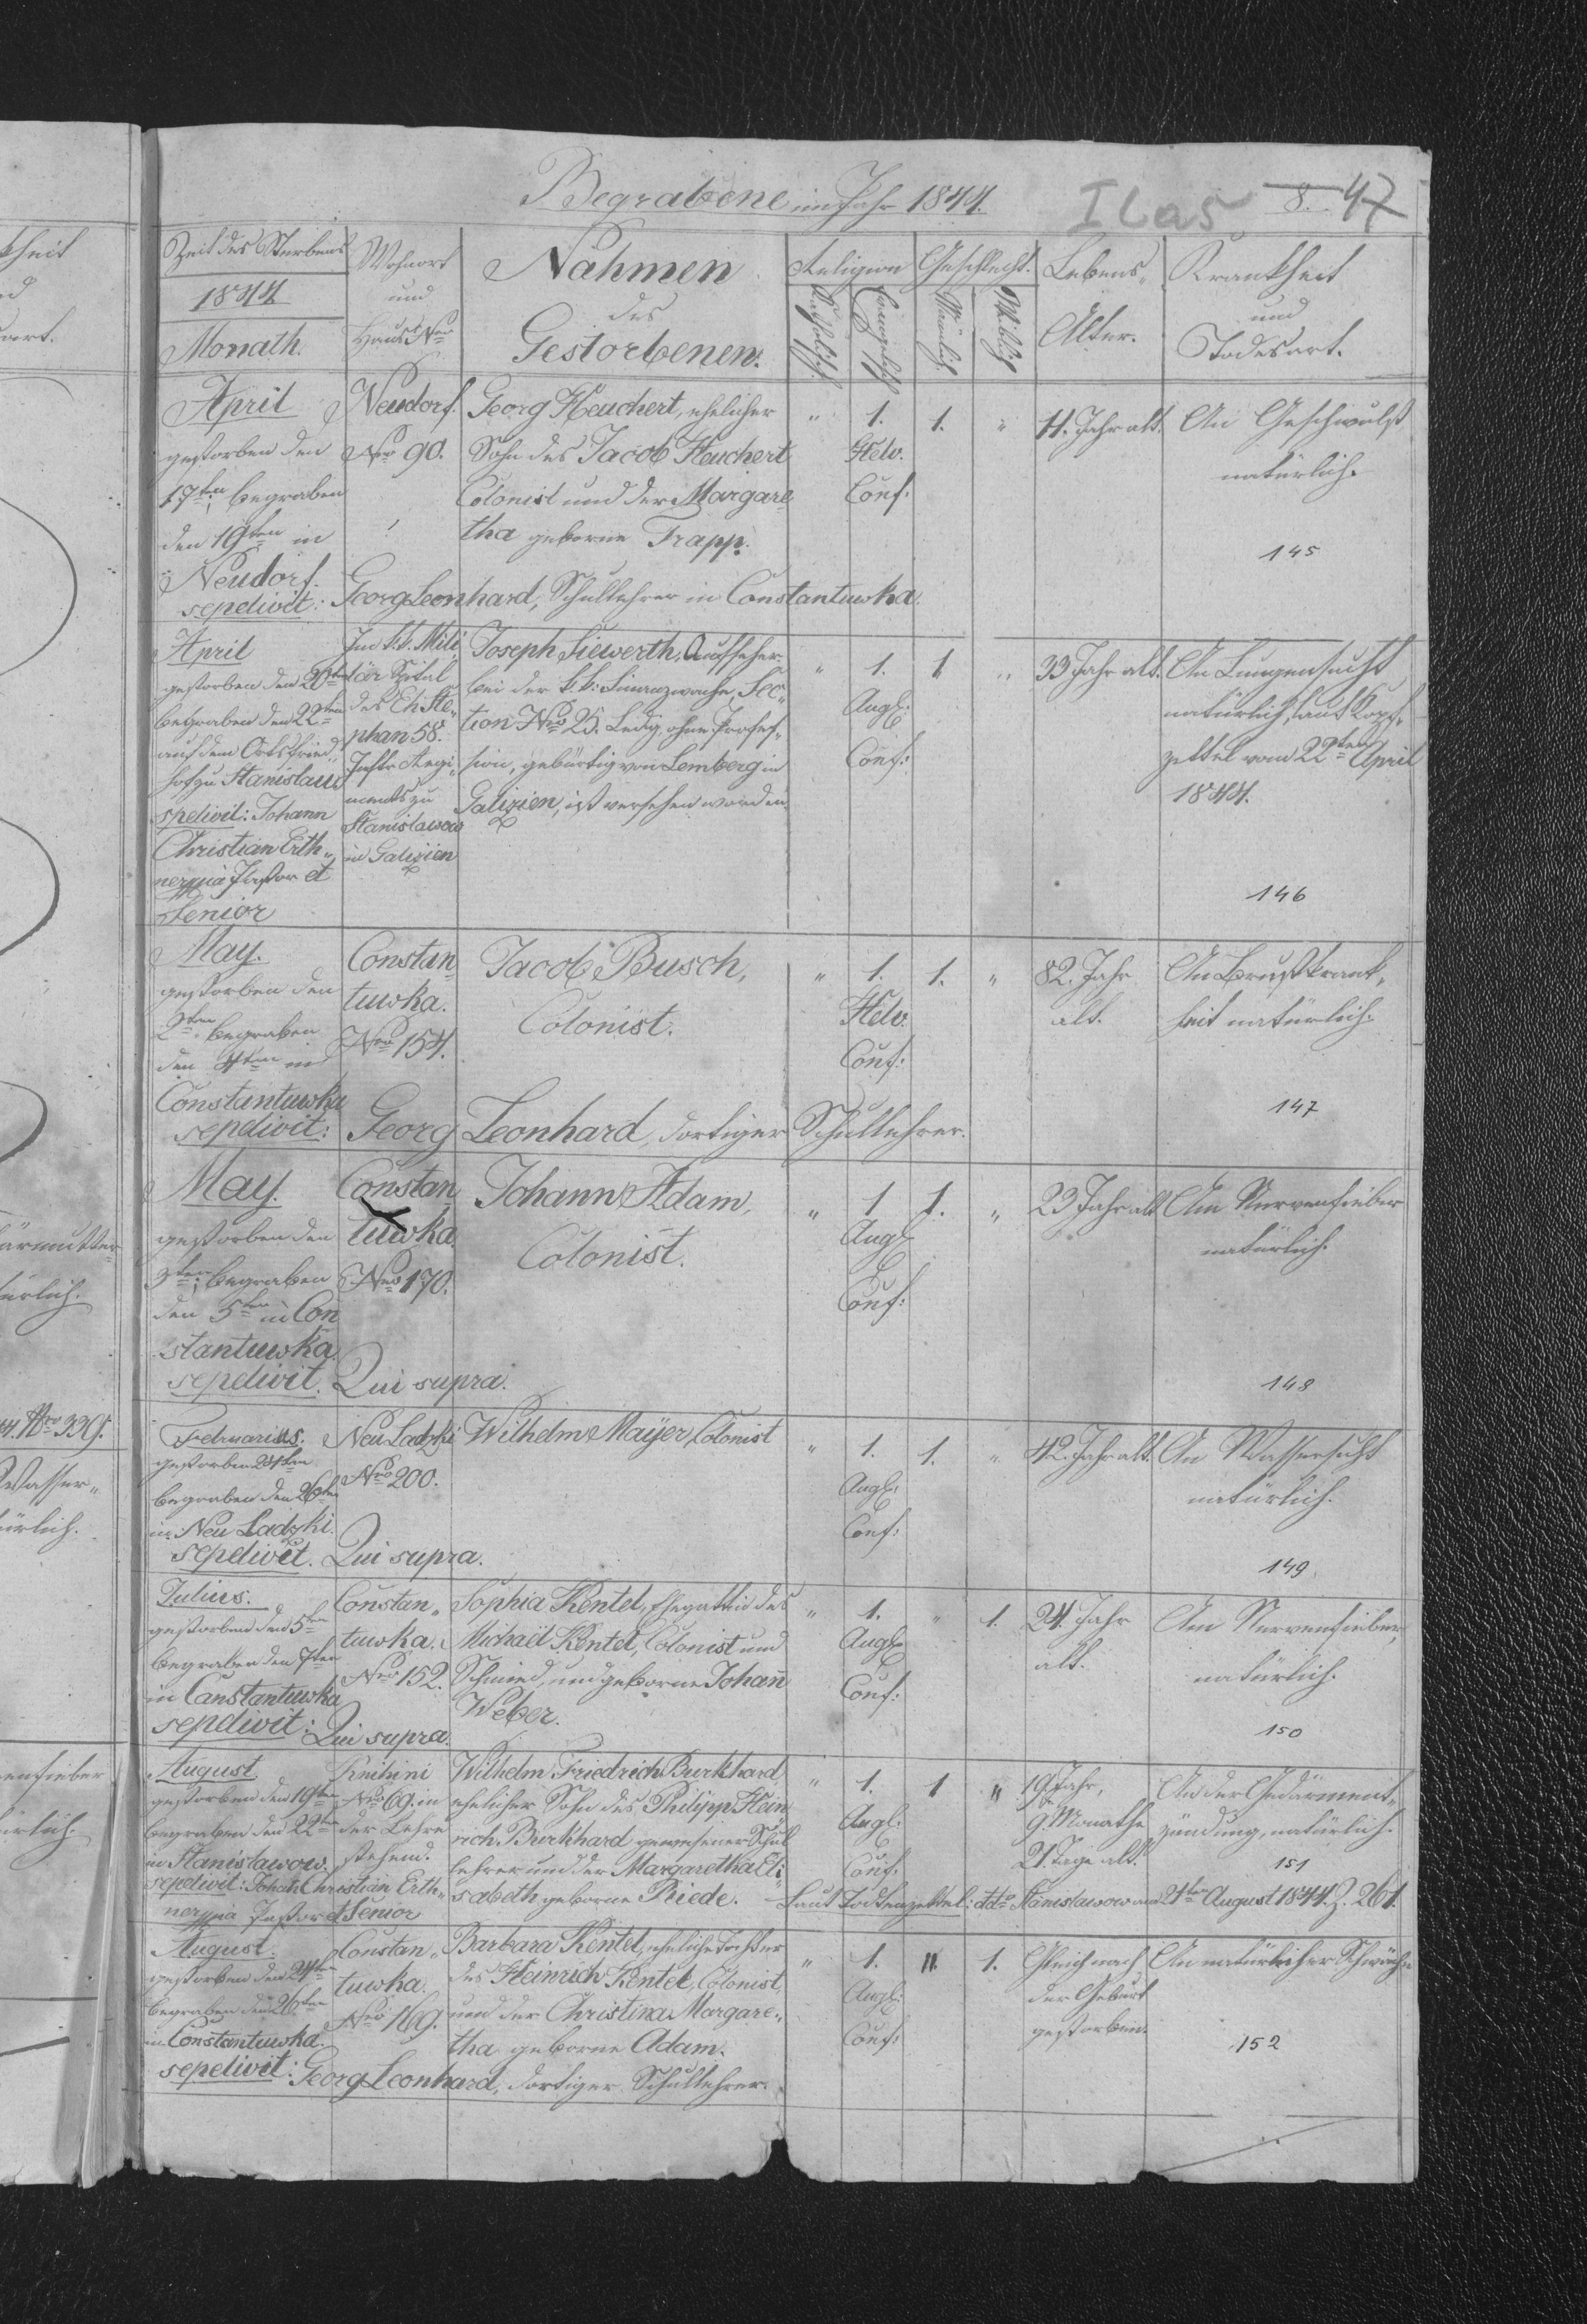 Begrabene im Jahr 1844.
8. 47
Zeit des Sterbens
1844
Monath.
Wohnort
und
Haus Nro
Nahmen
des
Gestorbenen.
Religion
Katholisch
Evangelisch
Geschlecht.
Männlich
Weiblich
Lebens-
Alter.
Krankheit
und
Todesart.
April
gestorben den
17ten, begraben
den 19ten in
Neudorf.
sepelivit: Georg Leonhard, Schullehrer in Constantuwka.
Neudorf.
Nro 90.
Georg Heuchert, ehelicher
Sohn des Jacob Heuchert
Colonist und der Margare
tha geborne Trapp.
" 1. 1. "
Helv.
Conf:
11. Jahr alt.
An Geschwulst
natürlich.
145
April
gestorben den 20ten
begraben den 22ten
auf dem Ortsfried„
hof zu Stanislau
spelivit: Johann
Christian Erth„
ner mpia Pastor et
Senior
Im k.k. Mili
tär Spital
des Eh Ste„
phan 58.
Inftr Regi„
ments zu
Stanislawow
in Galizien
Joseph Siewerth, Aufseher
bei der k.k: Finanzwache, Sec„
tion Nro 25. Ledig, ohne Profes„
sion, gebürtig von Lemberg in
Galizien, ist versehen worden.
" 1. 1. "
Augl:
Conf:
33 Jahr alt.
An Lungensucht
natürlich, laut Kopf„
zettel vom 22ten April
1844.
146
May.
gestorben den
2ten begraben
den 4ten in
Constantuwka
sepelivit: Georg Leonhard, dortiger Schullehrer.
Constan„
tuwka.
Nro 154.
Jacob Busch,
Colonist.
" 1. 1. "
Helv.
Conf:
82. Jahr
alt.
An Brustkrank„
heit natürlich.
147
May.
gestorben den
3ten, begraben
den 5ten in Con
stantuwka.
sepelivit. Qui supra.
Constan
tuwka.
Nro 170.
Johann Adam,
Colonist.
" 1 1. "
Augl
Conf:
23 Jahr alt
Am Nervenfieber
natürlich.
148
Februarius.
gestorben 24ten
begraben den 26ten
in Neu Ladzki.
sepelivit. Qui supra.
Neu Ladzki
Nro 200.
Wilhelm Mayer, Colonist
" 1. 1. "
Augl:
Conf:
42. Jahr alt.
An Wassersucht
natürlich.
149
Julius.
gestorben den 5ten
begraben den 7ten
in Constantuwka
sepelivit: Qui supra.
Constan„
tuwka.
Nro 152.
Sophia Kentel, Ehegattin des
Michael Kentel, Colonist und
Schmied, und geborne Johan̄
Weber.
" 1. " 1.
Augl
Conf:
24. Jahr
alt.
Am Nervenfieber,
natürlich.
150
August.
gestorben den 19ten
begraben den 22ten
in Stanislawow.
sepelivit: Johan̄ Christian Erth„
ner mpia Pastor et Senior
Knihini
Nro 69. in
der Lehre
stehend.
Wilhelm Friedrich Burkhard,
ehelicher Sohn des Philipp Hein
rich Burkhard gewesener Schul
lehrer und der Margaretha Eli
sabeth geborne Riede.
" 1. 1 "
Augl:
Conf:
19. Jahr,
9. Monathe
21. Tage alt.
An der Gedärment„
zündung, natürlich.
151
Laut Todtenzettel: ddto Stanislawow am 21ten August 1844. Z. 261.
August.
gestorben den 24ten
begraben den 26ten
in Constantuwka.
sepelivit: Georg Leonhard, dortiger Schullehrer.
Constan„
tuwka.
Nro 169.
Barbara Kentel, eheliche Tochter
des Heinrich Kentel, Colonist,
und der Christina Margare„
tha geborne Adam.
" 1. " 1.
Augl:
Conf:
Gleich nach
der Geburt
gestorben.
An natürlicher Schwäche
152